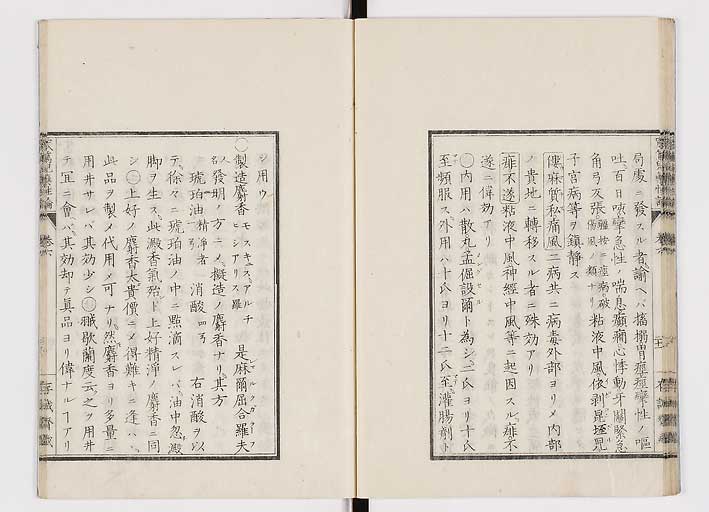 局處ニ發スル者諭ヘバ搐搦胃痙痙攣性ノ嘔
吐、百日咳、攣急性ノ喘息、癲癇、心悸動、牙關緊急
角弓反張 粘液中風、依剥昆垤兒
子宮病等ヲ鎮静ス
僂麻質私痛風二病共ニ病毒外部ヨリメ内部
ノ貴地ニ轉移スル者ニ殊効アリ
癱不遂粘液中風神經中風等ニ起因スル癱不
遂ニ偉効アリ
〇内用ハ散丸孟倔設爾ト為シ二氏ヨリ十氏
至頻服ス外用ハ十氏ヨリ十二氏至灌腸劑ト
シ用ウ
〇製造麝香 モスキュス、アルチヒシアリス羅 是麻爾屈合羅夫
人名ノ發明ノ方ニメ擬造ノ麝香ナリ其方
琥珀油精淨者一弓 消酸四弓 右消酸ヲ以
テ徐々ニ琥珀油ノ中ニ點滴スレバ油中忽澱
脚ヲ生ス、此澱香氣殆ド上好精淨ノ麝香ニ同
シ〇上好ノ麝香太貴價ニメ得難キニ逢ハヾ
此品ヲ製メ代用メ可ナリ然麝香ヨリ多量ニ
用井サレバ其効少シ〇瓛歇蘭度云之ヲ用井
テ宜ニ會ハヾ其効却テ真品ヨリ偉ナルヿアリ